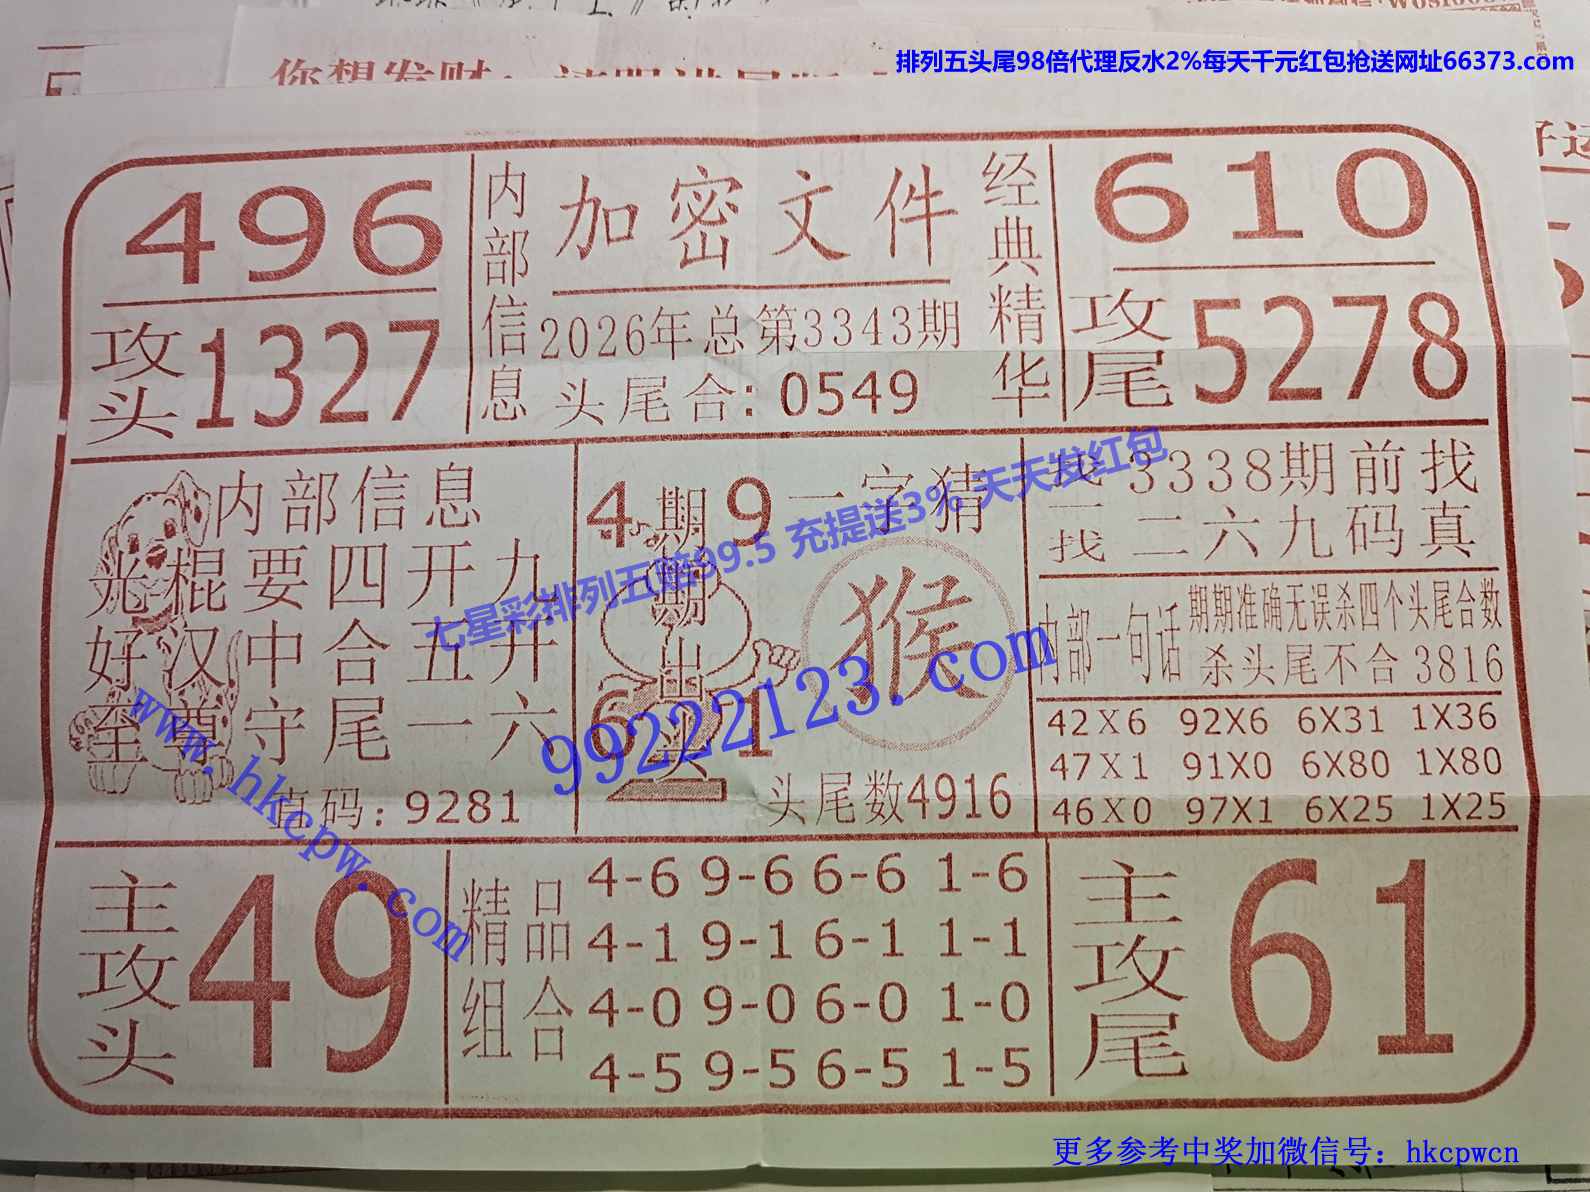 排列五头尾98倍代理反水2%每天千元红包抢送网址66373.com
496
攻头1327
内部信息
加密文件
2026年总第3343期
头尾合:0549
经典精华
610
攻尾5278
内部信息
光棍要四开九
好汉中合五开
至尊守尾一六
直码:9281
4 9 6 1
期期出奖
一字猜
猴
头尾数4916
找一找
3338期前找
二六九码真
内部一句话
期期准确无误杀四个头尾合数
杀头尾不合3816
42X6 92X6 6X31 1X36
47X1 91X0 6X80 1X80
46X0 97X1 6X25 1X25
主攻头
49
精品组合
4-6 9-6 6-6 1-6
4-1 9-1 6-1 1-1
4-0 9-0 6-0 1-0
4-5 9-5 6-5 1-5
主攻尾
61
七星彩排列五赔99.5 充提送3% 天天发红包
99222123.com
www.hkcpw.com
更多参考中奖加微信号：hkcpwcn